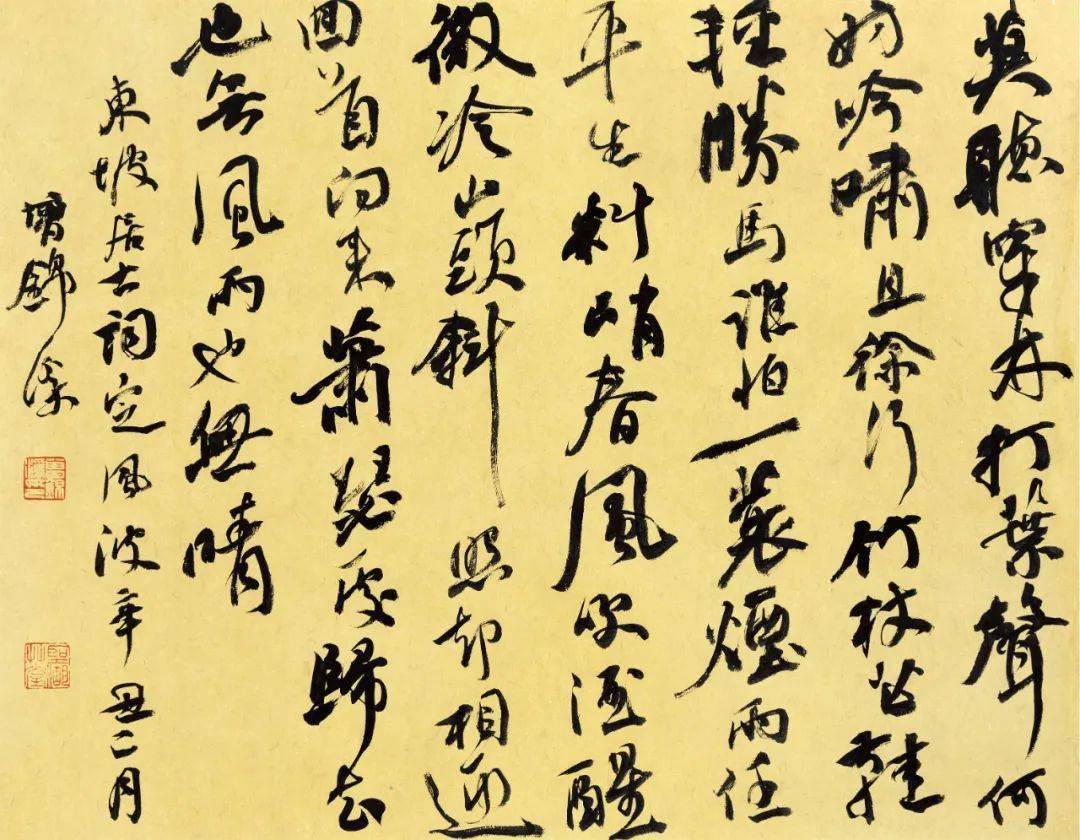 莫聽穿林打葉聲何
妨吟嘯且徐行竹杖芒鞋
輕勝馬誰怕一蓑煙雨任
平生料峭春風吹酒醒
微冷山頭斜照却相迎
回首向来蕭瑟處歸去
也無風雨也無晴
東坡居士詞定風波辛丑二月
錦